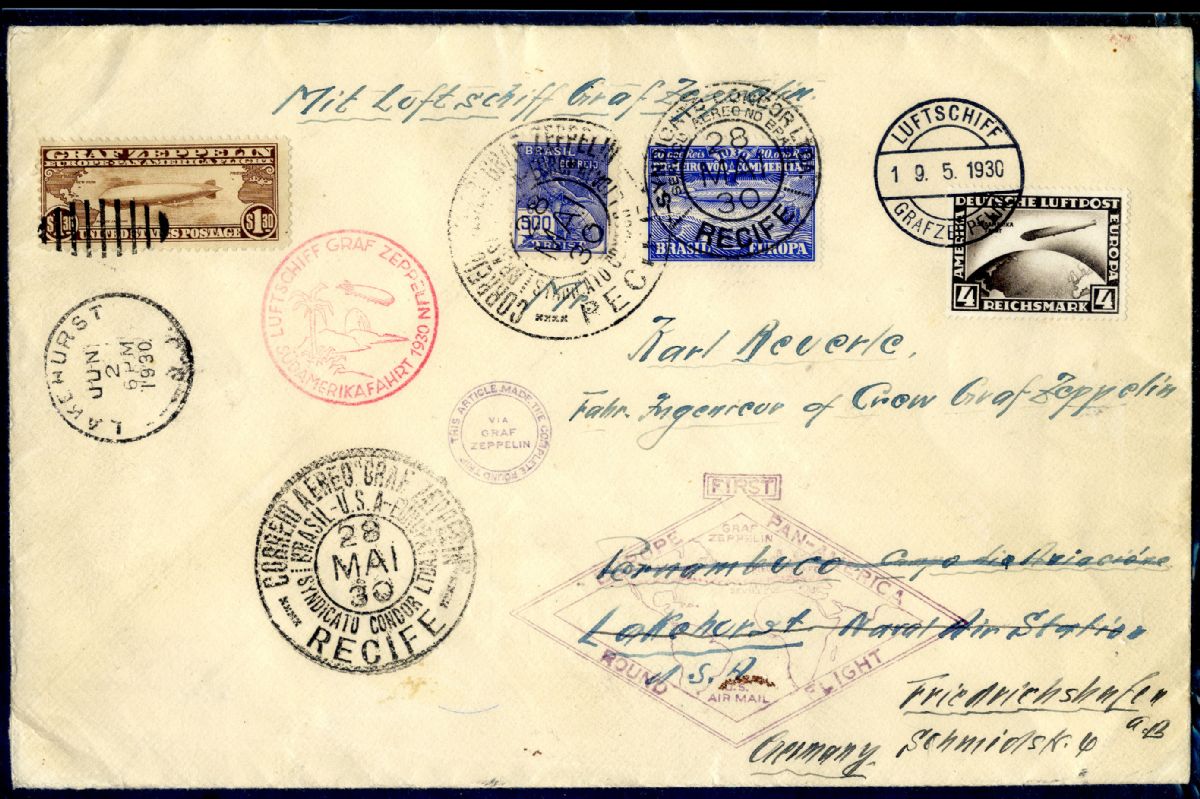 Mit Luftschiff Graf Zeppelin.
GRAF ZEPPELIN
EUROPE-PAN AMERICA FLIGHT
$1.30 $1.30
UNITED STATES POSTAGE
BRASIL
CORREIO
500
RÉIS
PRIMEIRO VÔO COMMERCIAL
BRASIL EUROPA
SYNDICATO CONDOR LTDA
28
MAI
30
RECIFE
CORREIO AEREO GRAF ZEPPELIN
28
MAI
30
SYNDICATO CONDOR
RECIFE
LUFTSCHIFF
19. 5. 1930
GRAF ZEPPELIN
DEUTSCHE LUFTPOST
AMERIKA
EUROPA
4 4
REICHSMARK
LUFTSCHIFF GRAF ZEPPELIN
SÜDAMERIKAFAHRT 1930 N
LAKEHURST
JUN
2
6 PM
1930
Mr.
Karl Beuerle,
Fahr. Ingenieur of Crew Graf Zeppelin
THIS ARTICLE MADE THE COMPLETE ROUND TRIP
VIA
GRAF
ZEPPELIN
CORREIO AEREO "GRAF ZEPPELIN"
BRASIL-U.S.A-EUROPA
28
MAI
30
SYNDICATO CONDOR LTDA
RECIFE
FIRST
EUROPE PAN-AMERICA
GRAF
ZEPPELIN
ROUND FLIGHT
U.S.
AIR MAIL
Pernambuco Campo
Lakehurst Naval Air Station
U S. A
Friedrichshafen
a.B
Germany